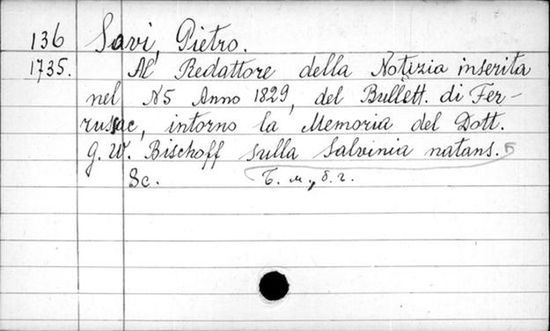 136 Savi, Pietro.
1735. Al Redattore della Notizia inserita
nel N5 Anno 1829, del Bullett. di Fer-
russac, intorno la Memoria del Dott.
G. W. Bischoff sulla Salvinia natans.
Sc. Б. м., б. г.